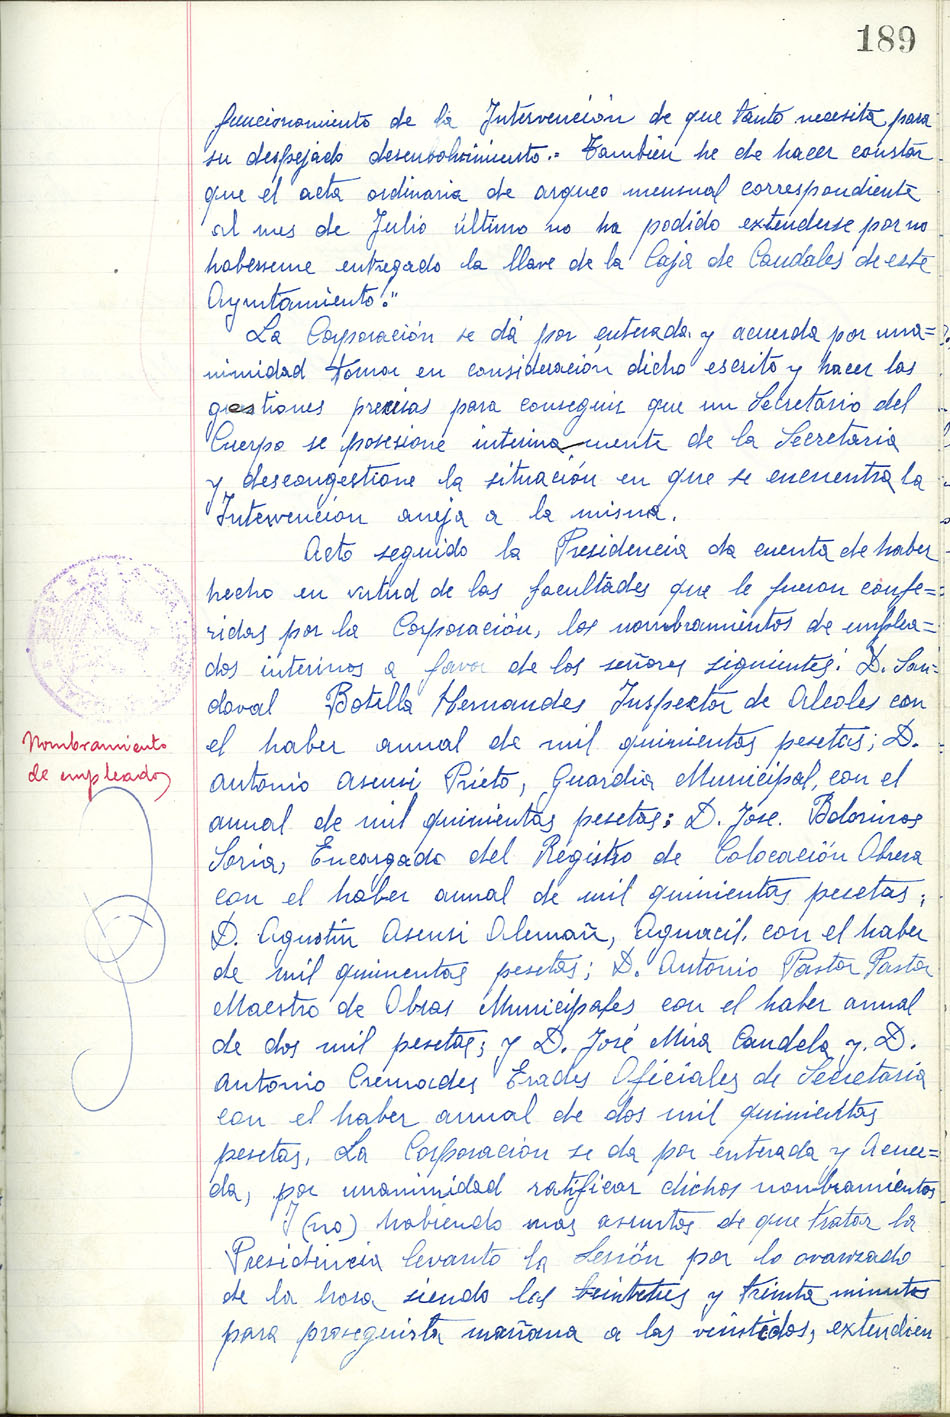 189
funcionamiento de la Intervención de que tanto necesita para
su despejado desenvolvimiento.- También he de hacer constar
que el acta ordinaria de arqueo mensual correspondiente
al mes de Julio último no ha podido extenderse por no
habérseme entregado la llave de la Caja de Caudales de este
Ayuntamiento."
La Corporación se dá por enterada y acuerda por una=
nimidad tomar en consideración dicho escrito y hacer las
gestiones precisas para conseguir que un Secretario del
Cuerpo se posesione interinamente de la Secretaria
y descongestione la situación en que se encuentra la
Intervención aneja a la misma.
Acto seguido la Presidencia da cuenta de haber
hecho en virtud de las facultades que le fueron confe=
ridas por la Corporación, los nombramientos de emplea-
dos interinos a favor de los señores siguientes: D. San-
doval Botella Hernandes Inspector de Alcoles con
el haber annal de mil quinientas pesetas; D.
Antonio Asensi Prieto, Guardia Municipal, con el
annal de mil quinientas pesetas; D. Jose Bolorinos
Soria, Encargado del Registro de Colocación Obrera
con el haber annal de mil quinientas pesetas;
D. Agustín Asensi Alemañ, Aguacil, con el haber
de mil quinientas pesetas; D. Antonio Pastor Pastor
Maestro de Obras Municipales con el haber annal
de dos mil pesetas; y D. José Mira Candela y D.
Antonio Cremades Erades Oficiales de Secretaria
con el haber annal de dos mil quinientas
pesetas. La Corporación se da por enterada y acuer=
da, por unanimidad ratificar dichos nombramientos
Y (no) habiendo mas asuntos de que tratar la
Presidencia levanto la Sesión por lo avanzado
de la hora siendo las y treinta minutos
para proseguirla mañana a las veintidos, extendien
Nombramiento
de empleados